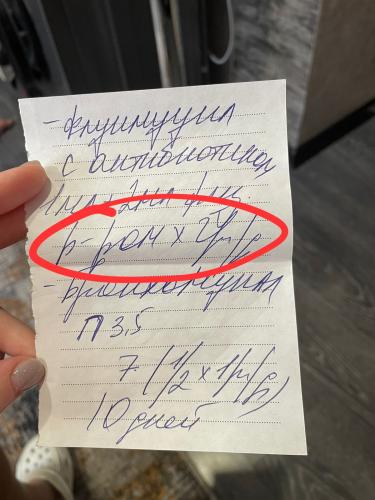 - флуимуцил
с антибиотиком
1мл + 2мл физ
р-ром х 2 р/д
- Бронхомунал
П 3,5
7 (1/2 х 1 р/д)
10 дней